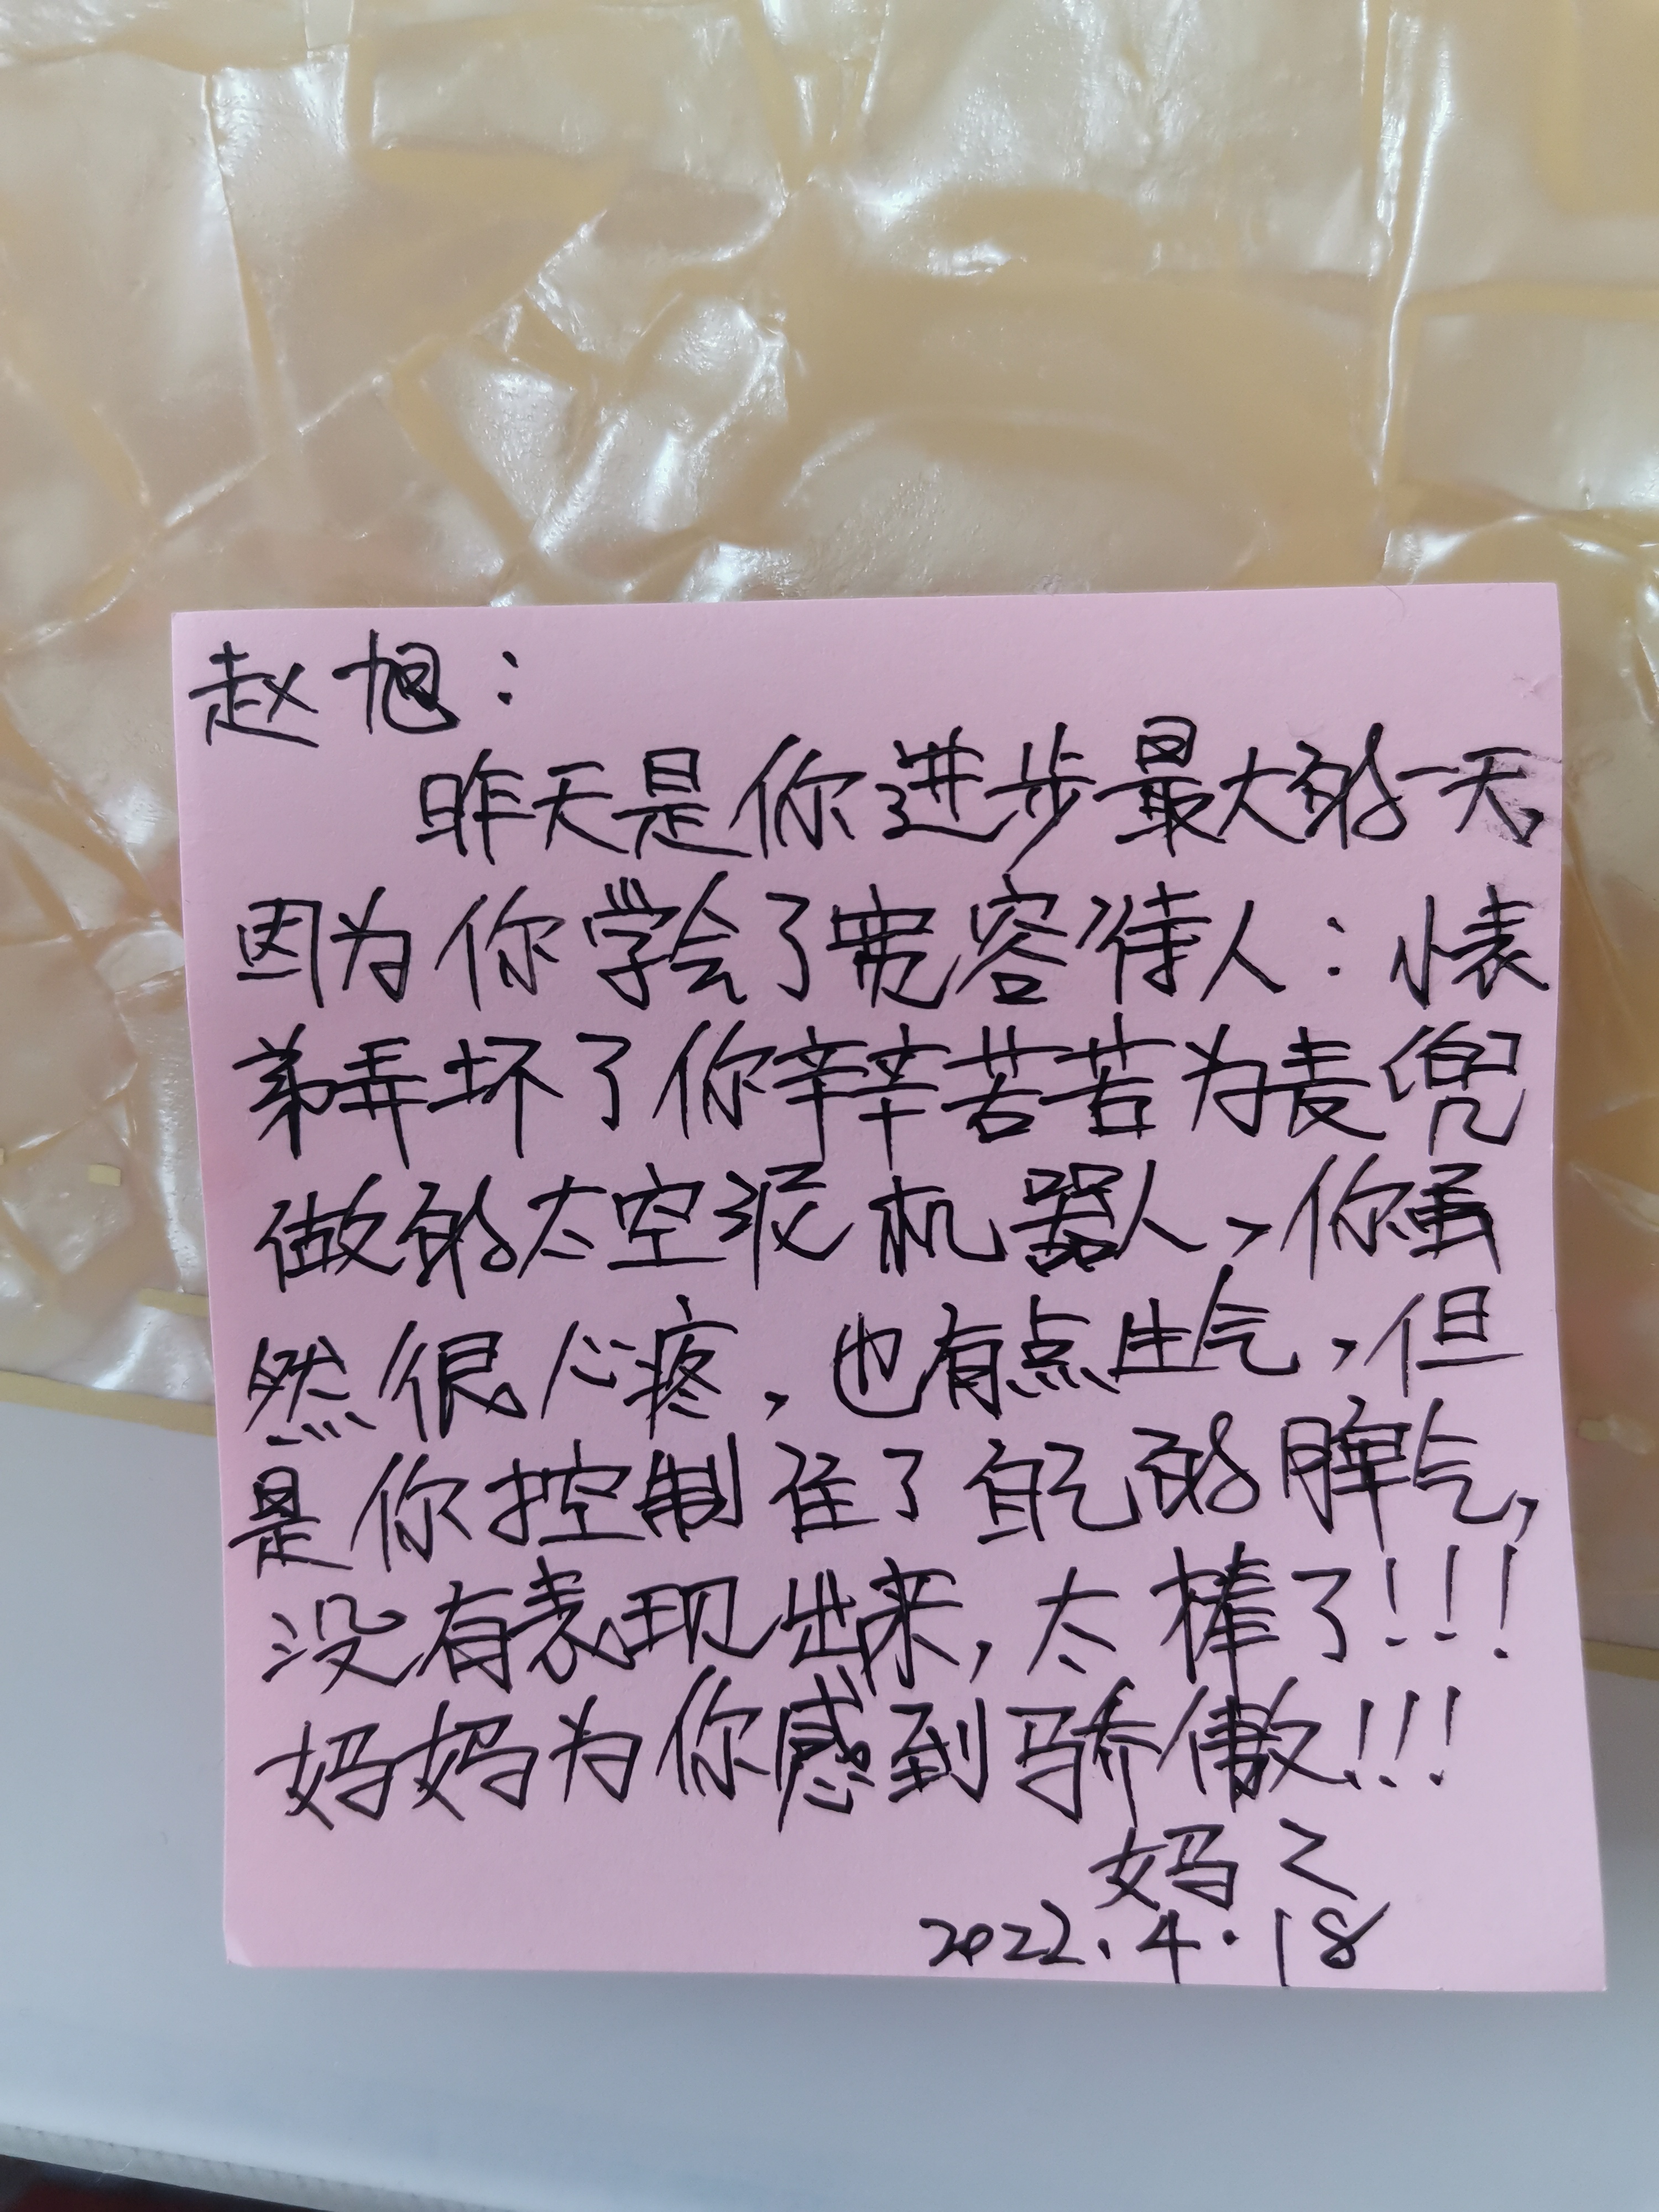 赵旭：
昨天是你进步最大的一天，
因为你学会了宽容待人：小表
弟弄坏了你辛辛苦苦为麦兜
做的太空泥机器人，你虽
然很心疼，也有点生气，但
是你控制住了自己的脾气，
没有表现出来，太棒了！！！
妈妈为你感到骄傲！！！
妈々
2022.4.18